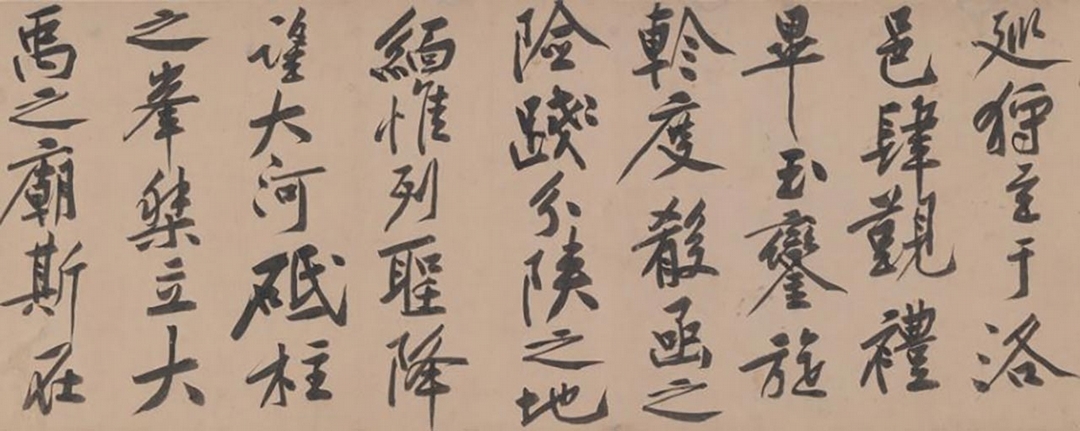 廵狩至于洛
邑肆覲禮
畢玉鑾旋
軫度殽函之
險踐分陝之地
緬惟列聖降
望大河砥柱
之峯桀立大
禹之廟斯在